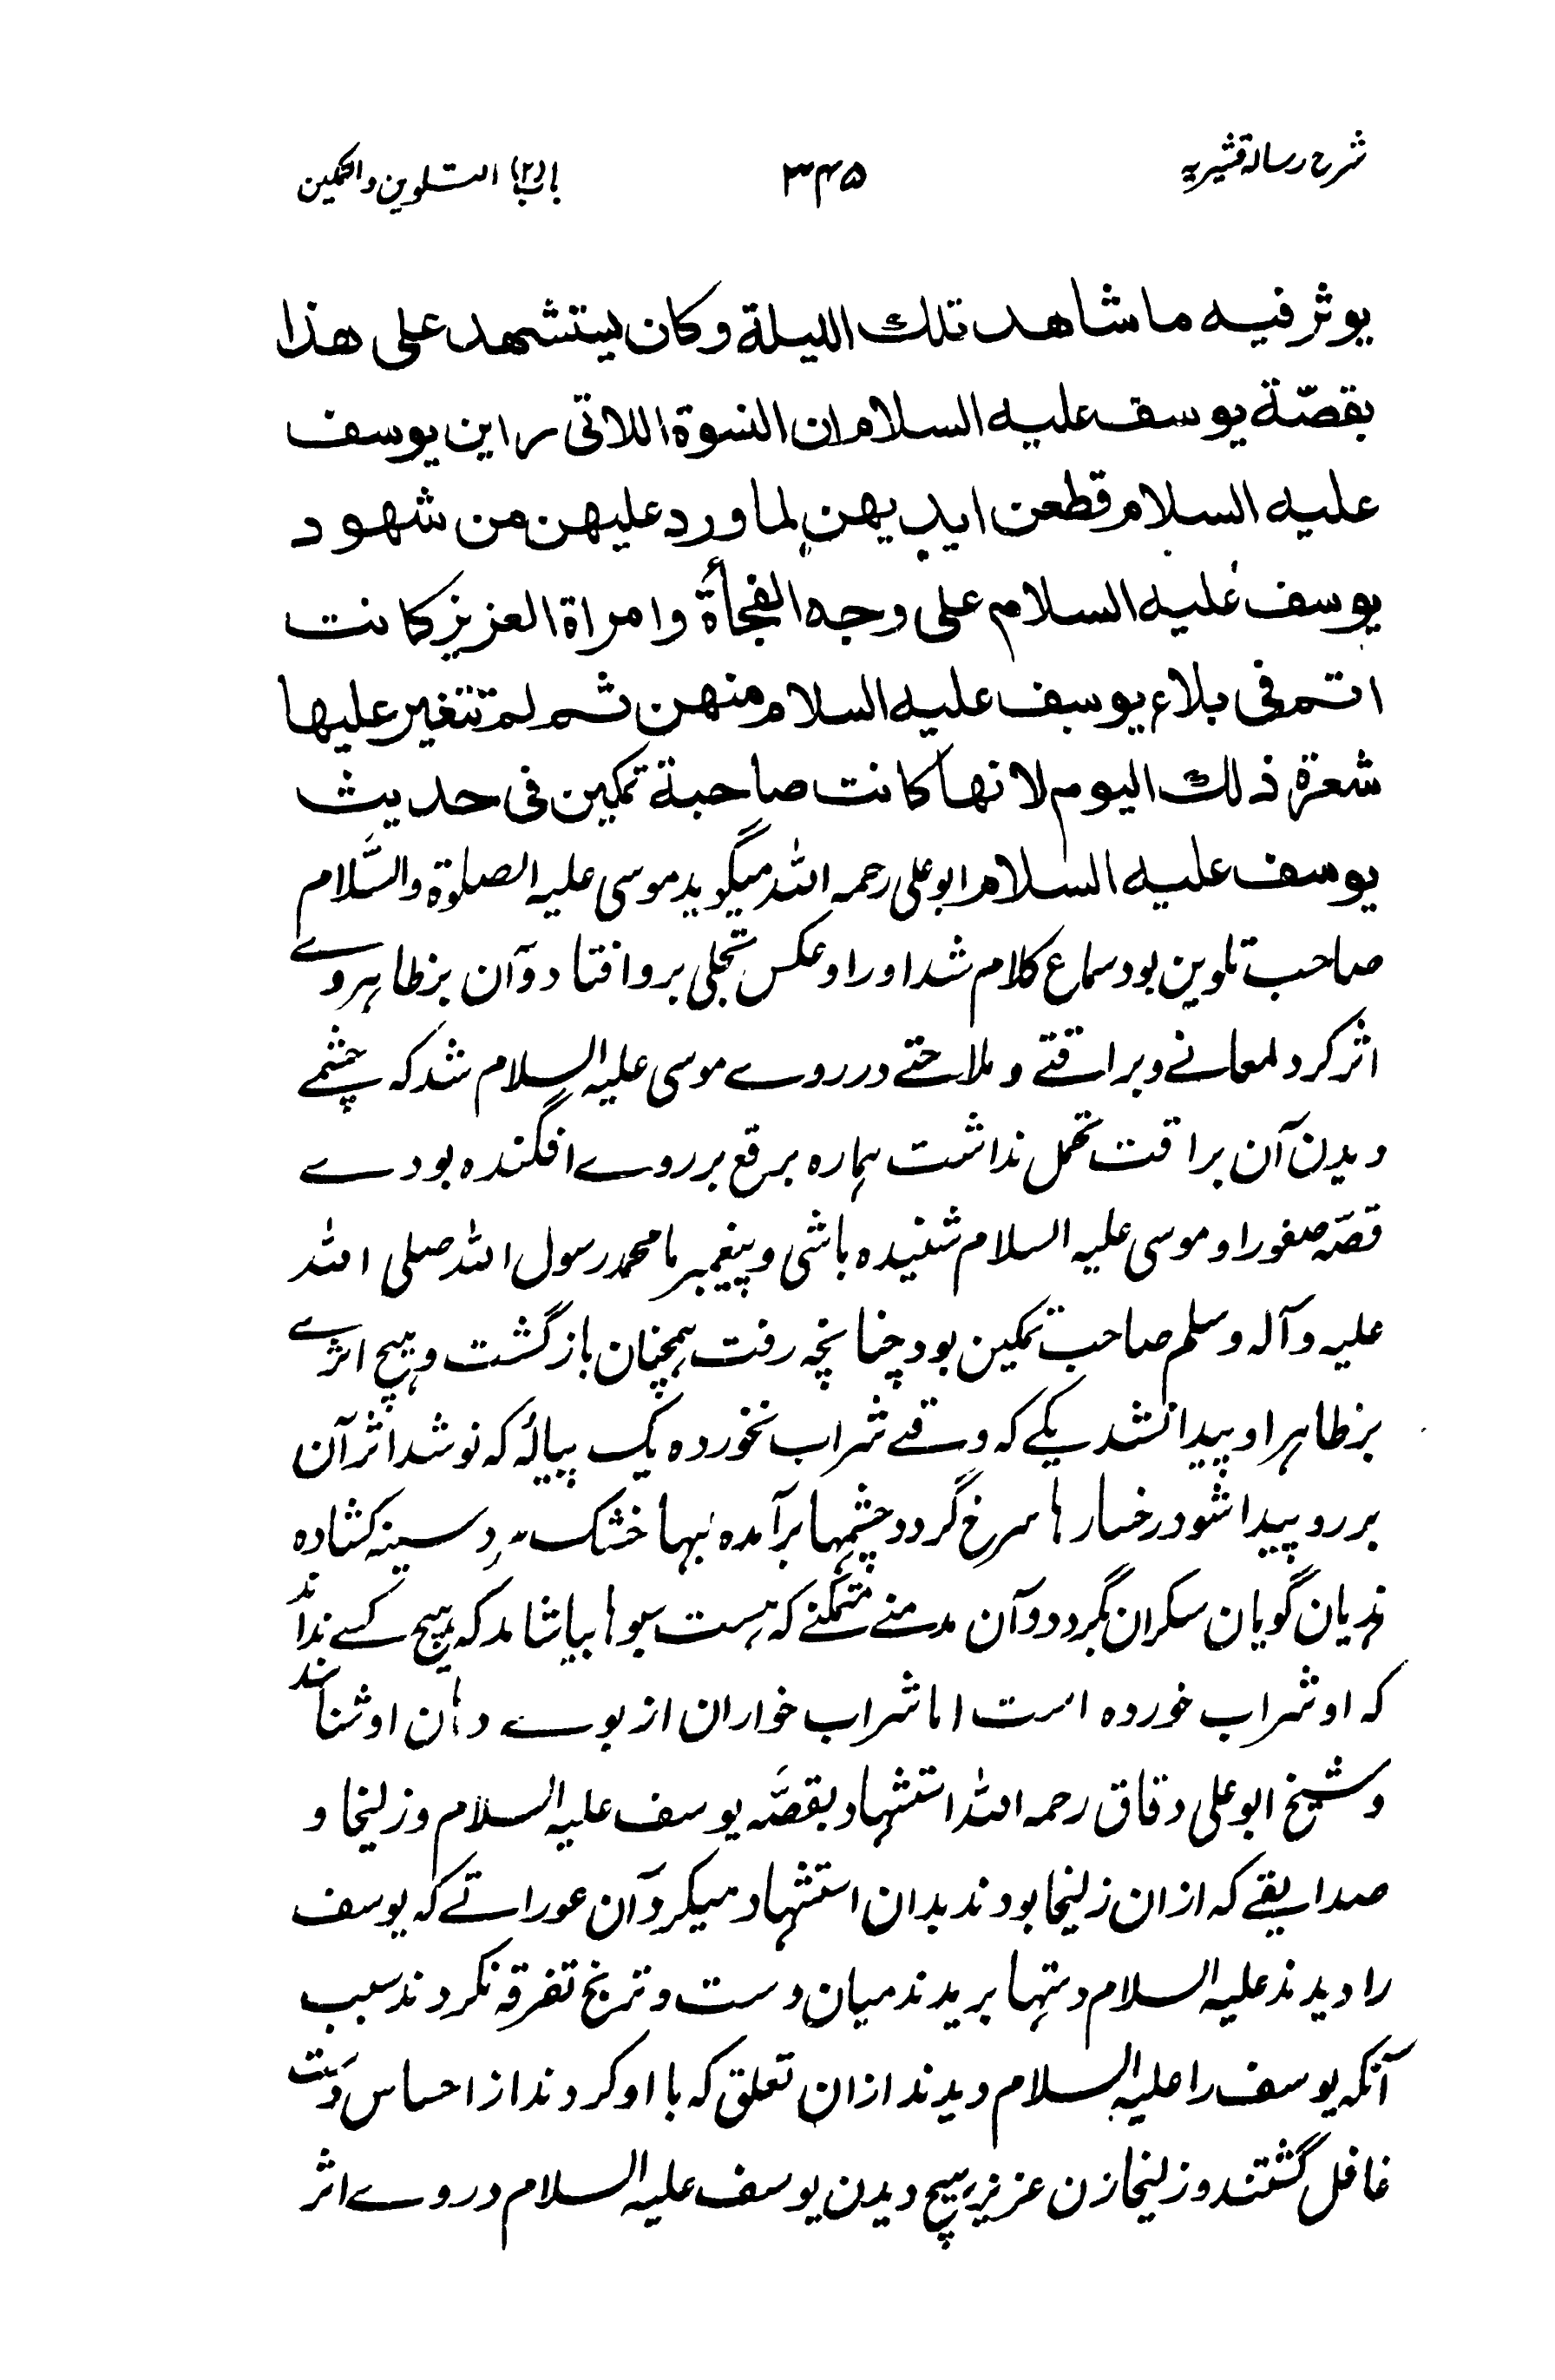 شرح رسالہ قشیریہ ۳۴۵ باب(۲) التلوین والتمکین
یوثر فیہ ما شاھد تلک اللیلة وکان یستشھد علی ھذا
بقصّة یوسف علیہ السلام ان النسوة اللاتی راین یوسف
علیہ السلام قطعن ایدیھن لما ورد علیھن من شھود
یوسف علیہ السلام علی وجہ الفجأة وامراة العزیز کانت
اتم فی بلاء یوسف علیہ السلام منھن ثم لم تتغیر علیھا
شعرة ذلک الیوم لانھا کانت صاحبة تمکین فی حدیث
یوسف علیہ السلام ابو علی رحمہ اللہ میگوید موسی علیہ الصلوة والسَّلام
صاحب تلوین بود سماع کلام شد او را و عکس تجلی برو افتاد و آن بر ظاہر وے
اثر کرد لمعانے و براقتے و ملاحتے در روے موسی علیہ السلام شد کہ چشمے
دیدن آن براقت تحمل نداشت ہمارہ برقع بر روے افگندہ بودے
قصّہ صفورا و موسی علیہ السلام شنیدہ باشی و پیغمبر ما محمد رسول اللہ صلی اللہ
علیہ وآلہ وسلم صاحب تمکین بود چنانچہ رفت ہمچنان باز گشت و ہیچ اثرے
بر ظاہر او پیدا نشد یکے کہ وقتے شراب نخوردہ یک پیالہ کہ نوشد اثر آن
بر رو پیدا شود رخسارہا سرخ گردد چشمہا برآمدہ لبہا خشک سینہ کشادہ
ہذیان گویان سکران گردد و آن مدمنے متمکنے کہ ہست سبوہا بیاشامد کہ ہیچ کسے نداند
کہ او شراب خوردہ است اما شراب خواران از بوے دہان او شناسند
و شیخ ابو علی دقاق رحمہ اللہ استشہاد بقصَّہ یوسف علیہ السلام و زلیخا و
صدایقے کہ ازان زلیخا بودند بدان استشہاد میکرد آن عوراتے کہ یوسف
را دیدند علیہ السلام دستہا بریدند میان دست و ترنج تفرقہ نکردند سبب
آنکہ یوسف را علیہ السلام دیدند ازان تعلق کہ با او کردند از احساس دست
غافل گشتند و زلیخا زن عزیز ہیچ دیدن یوسف علیہ السلام در وے اثر